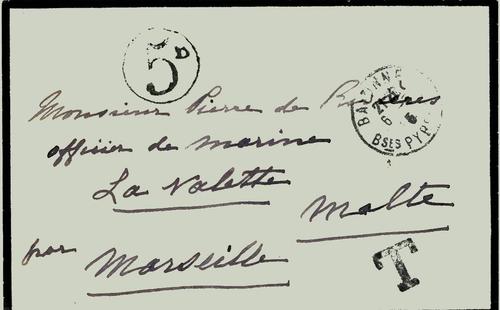 5D
Monsieur Pierre de
officier de marine
La Valette
Malte
par Marseille
BAYONNE
BSES PYR
T